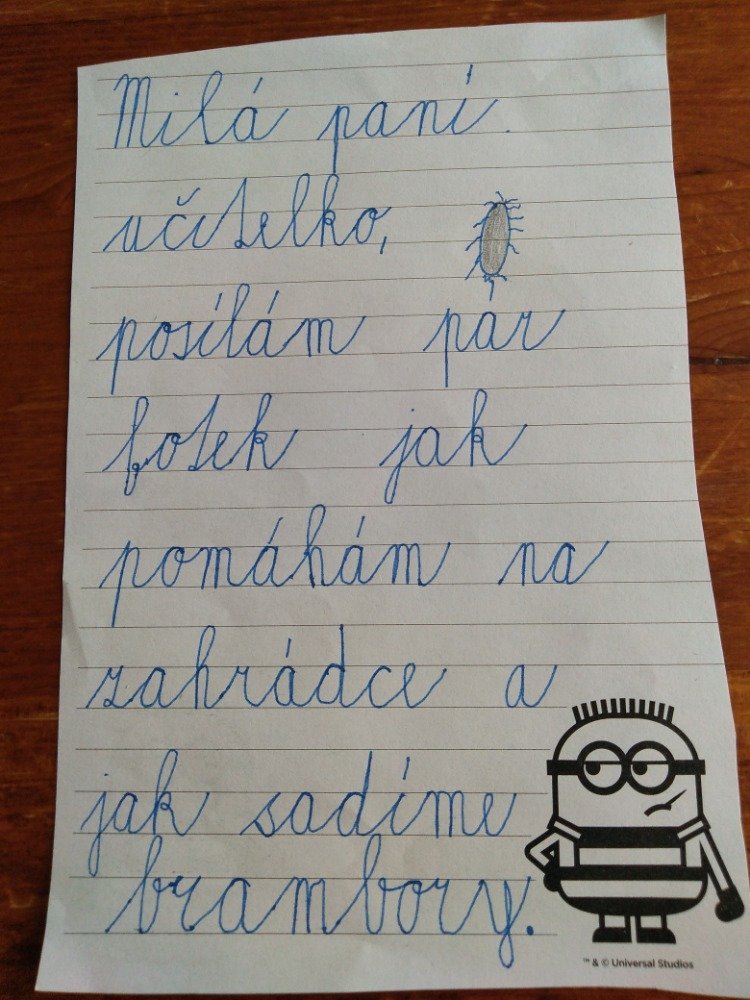 Milá paní
učitelko,
posílám pár
fotek jak
pomáhám na
zahrádce a
jak sadíme
brambory.
™ & © Universal Studios